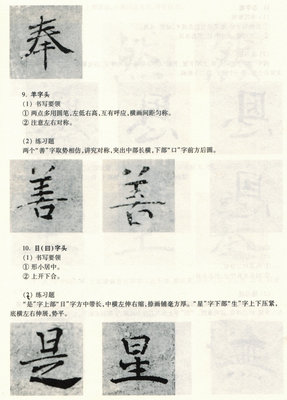 奉
9. 羊字头
(1) 书写要领
① 两点多用圆笔,左低右高,互有呼应,横画间距匀称。
② 注意左右对称。
(2) 练习题
两个“善”字取势相仿,讲究对称,突出中部长横,下部“口”字前方后圆。
善 善
10. 日(曰)字头
(1) 书写要领
① 形小居中。
② 上开下合。
(2) 练习题
“是”字上部“日”字方中带长,中横左伸右缩,捺画铺毫方厚。“星”字下部“生”字上下压紧,
底横左右伸展,势平。
是 星